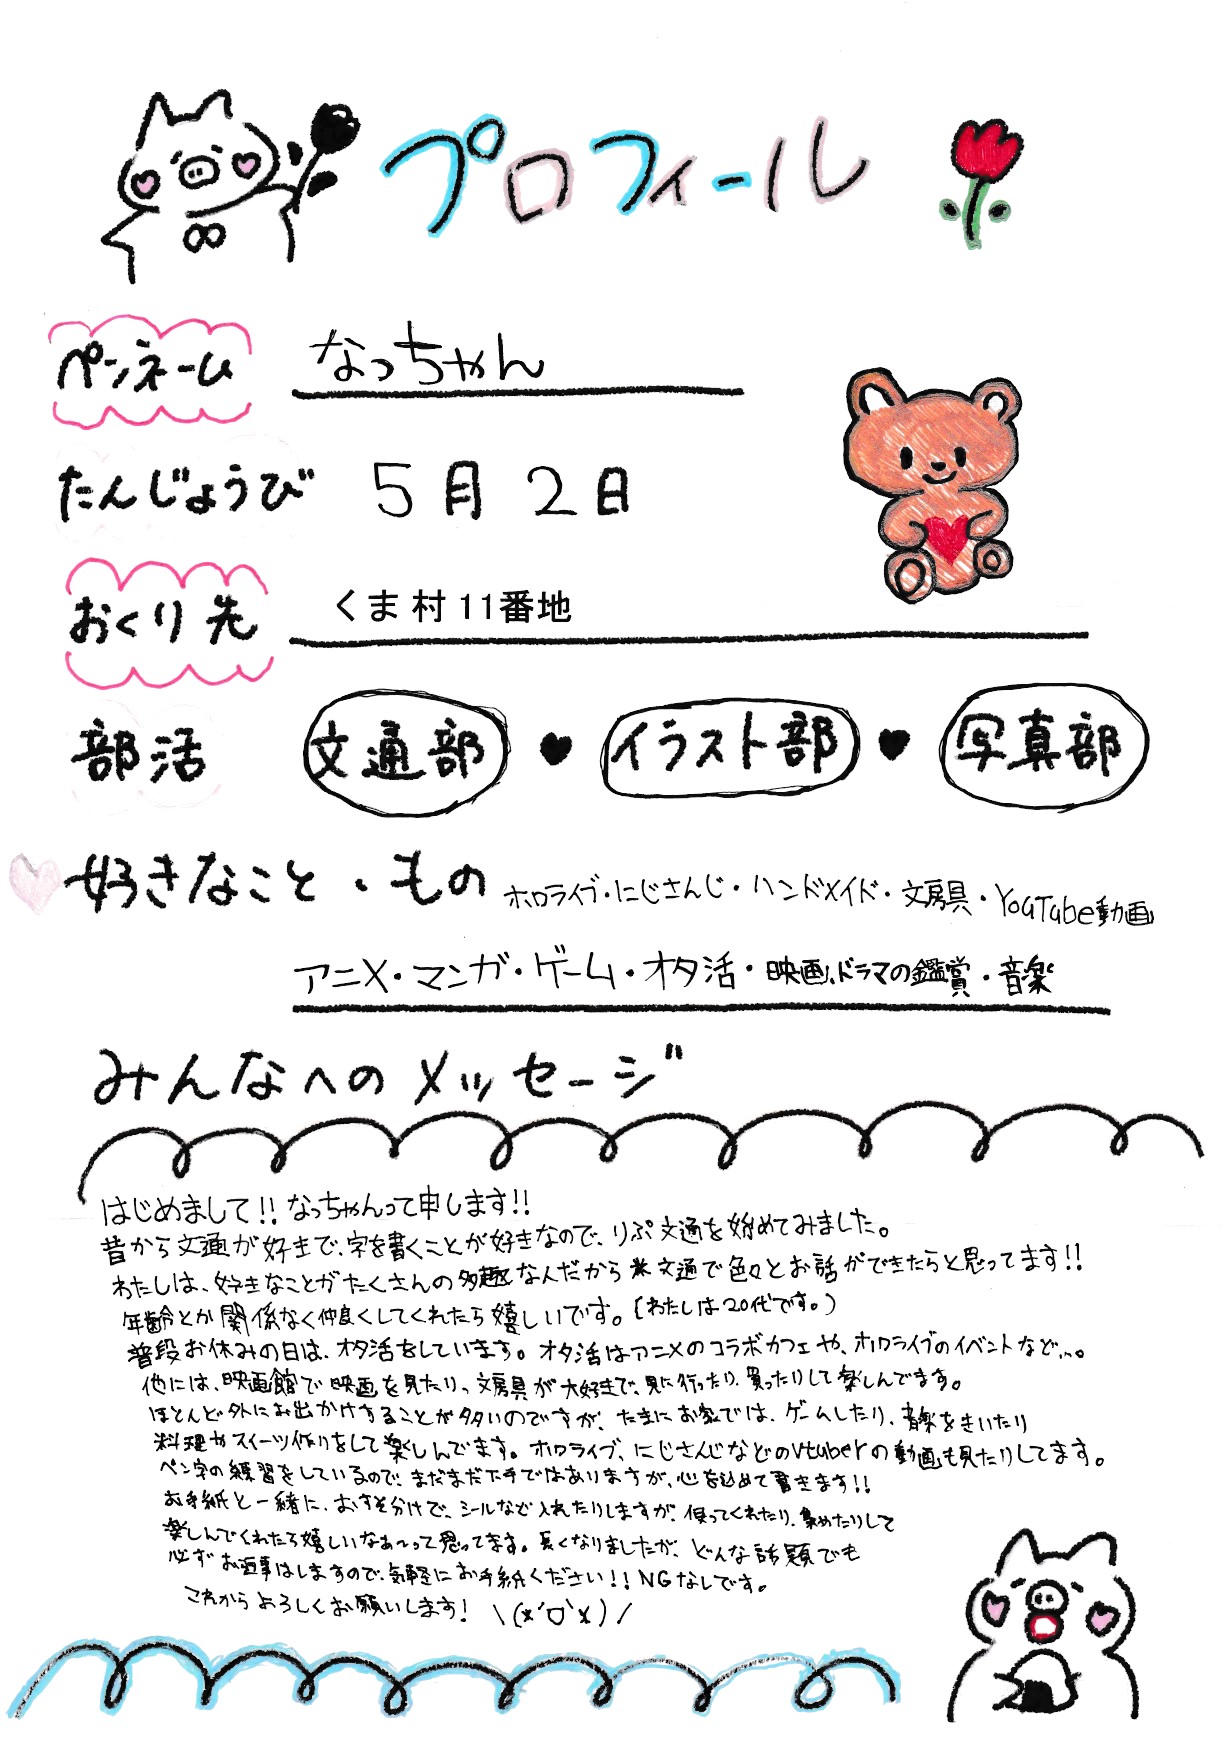 プロフィール
ペンネーム なっちゃん
たんじょうび 5月2日
おくり先 くま村11番地
部活 文通部 ♥ イラスト部 ♥ 写真部
好きなこと・もの ホロライブ・にじさんじ・ハンドメイド・文房具・YouTube動画
アニメ・マンガ・ゲーム・オタ活・映画、ドラマの鑑賞・音楽
みんなへのメッセージ
はじめまして!! なっちゃんって申します!!
昔から文通が好きで、字を書くことが好きなので、りぷ文通を始めてみました。
わたしは、好きなことがたくさんの多趣な人だから※文通で色々とお話ができたらと思ってます!!
年齢とか関係なく仲良くしてくれたら嬉しいです。(わたしは20代です。)
普段お休みの日は、オタ活をしています。オタ活はアニメのコラボカフェや、ホロライブのイベントなど…。
他には、映画館で映画を見たり、文房具が大好きで、見に行ったり、買ったりして楽しんでます。
ほとんど外にお出かけすることが多いのですが、たまにお家では、ゲームしたり、音楽をきいたり
料理やスイーツ作りをして楽しんでます。ホロライブ、にじさんじなどのVtuberの動画も見たりしてます。
ペン字の練習をしているので、まだまだ下手ではありますが、心を込めて書きます!!
お手紙と一緒に、おすそ分けで、シールなど入れたりしますが、使ってくれたり、集めたりして
楽しんでくれたら嬉しいなぁ〜って思ってます。長くなりましたが、どんな話題でも
必ずお返事はしますので、気軽にお手紙ください!! NGなしです。
これからよろしくお願いします! \(*´▽`*)/